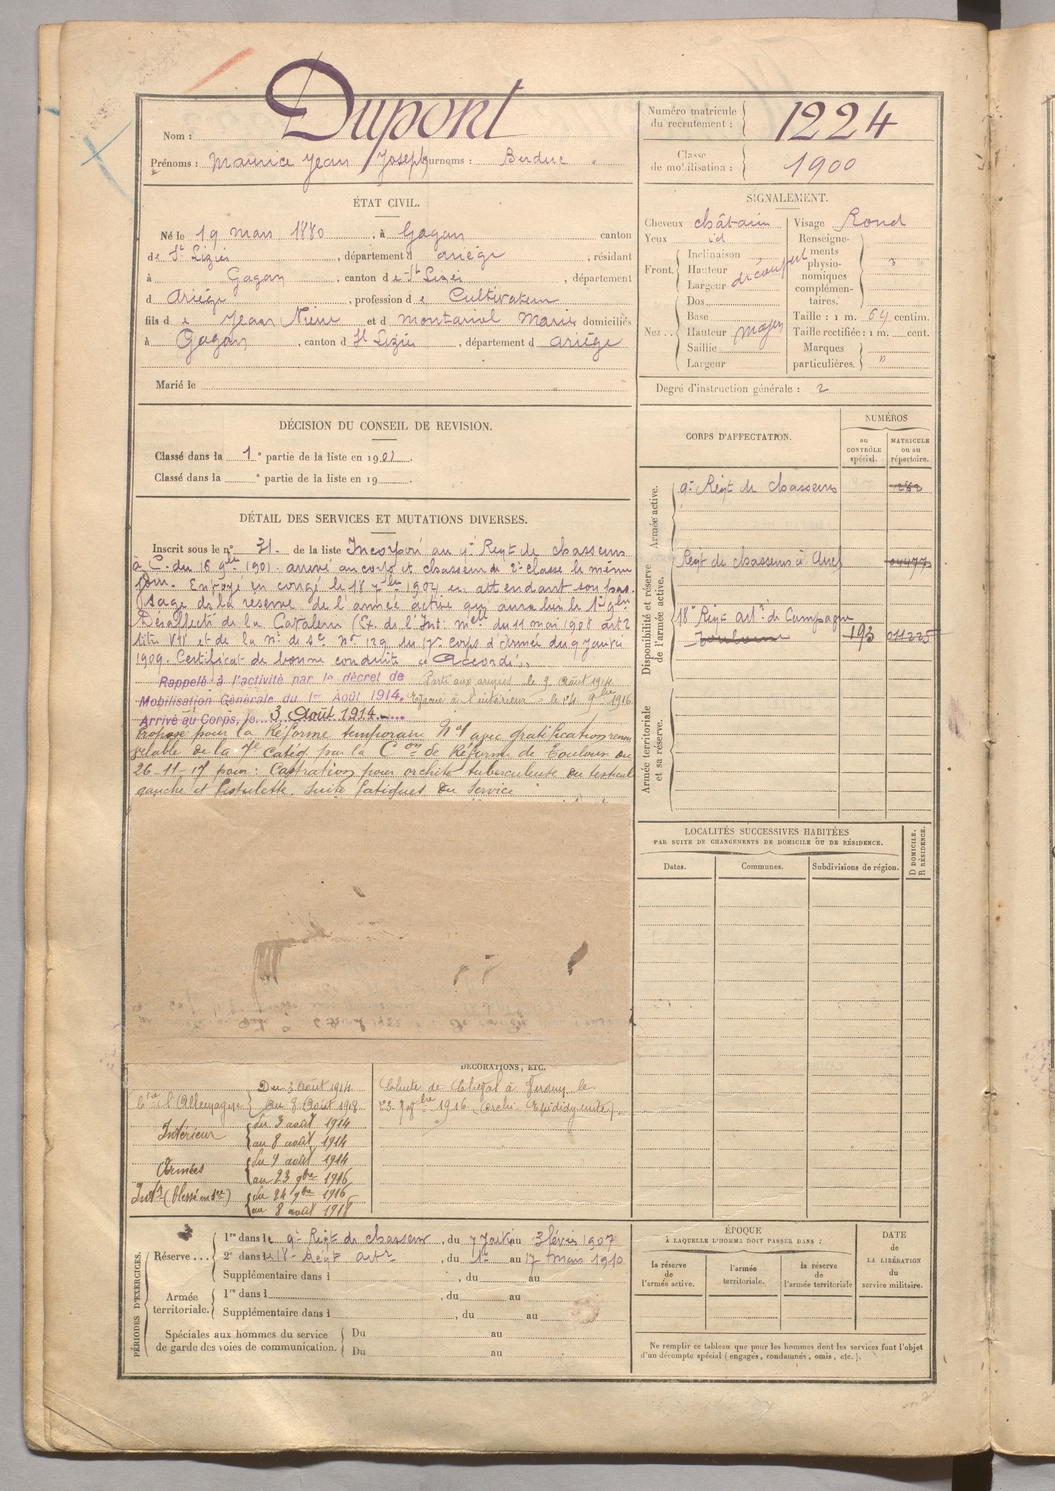 Nom : Dupont
Prénoms : Maurice Jean Joseph Surnoms : Berduc
Numéro matricule du recrutement : 1224
Classe de mobilisation : 1900
ÉTAT CIVIL.
Né le 19 mars 1880, à Gagan canton
de St Lizier, département d Ariège, résidant
à Gagan, canton de St Lizier, département
d Ariège, profession de Cultivateur
fils de Jean Pierre et d Montariol Marie domiciliés
à Gagan, canton d St Lizier, département d Ariège
Marié le
SIGNALEMENT.
Cheveux châtain
Yeux id
Front. Inclinaison
Hauteur découvert
Largeur
Nez.. Dos
Base
Hauteur moyen
Saillie
Largeur
Visage Rond
Renseignements physionomiques complémentaires. "
Taille : 1 m. 64 centim.
Taille rectifiée : 1 m. cent.
Marques particulières. "
Degré d'instruction générale : 2
DÉCISION DU CONSEIL DE REVISION.
Classé dans la 1e partie de la liste en 1901.
Classé dans la e partie de la liste en 19 .
DÉTAIL DES SERVICES ET MUTATIONS DIVERSES.
Inscrit sous le n° 31. de la liste Incorporé au 9e Régt de chasseurs
à C. du 16 9bre 1901. arrivé au corps et chasseur de 2e classe le même
jour. Envoyé en congé le 18 7bre 1904 en attendant son pas
sage de la réserve de l'armée active qui aura lieu le 1er 9bre
Désaffecté de la Cavalerie (Ex. de l'Int. melle du 11 mai 1908 art 2
titre VII et de la N. de Sce N° 129 du 17e Corps d'Armée du 9 Janvier
1909. Certificat de bonne conduite "Accordé"
Rappelé à l'activité par le décret de
Mobilisation Générale du 1er Août 1914.
Arrivé au Corps, le 3 Août 1914
Parti aux armées le 9 Août 1914.
à l'intérieur le 24 9bre 1916
Proposé pour la Réforme temporaire N°1 avec gratification renou
velable de la 7e Catég par la Con de Réforme de Toulouse du
26-11-17 pour : Castration pour orchite tuberculeuse du testicule
gauche et fistulette. Suite fatigues du service
CORPS D'AFFECTATION.
NUMÉROS
au CONTRÔLE spécial.
MATRICULE ou au répertoire.
Armée active.
9e Régt de chasseurs
Disponibilité et réserve de l'armée active.
Régt de chasseurs à Auch
18e Régt artie de Campagne
Toulouse 193
Armée territoriale et sa réserve.
LOCALITÉS SUCCESSIVES HABITÉES
PAR SUITE DE CHANGEMENTS DE DOMICILE OU DE RÉSIDENCE.
Dates.
Communes.
Subdivisions de région.
D DOMICILE.
R RÉSIDENCE.
DÉCORATIONS, ETC.
Cgne c. l'Allemagne { Du 3 Août 1914
au 8 Août 1918
Intérieur { du 3 août 1914
au 8 août 1914
Armées { du 9 août 1914
au 23 9bre 1916
Intr (blessé en sce) { du 24 9bre 1916
au 8 août 1918
Chute de Cheval à Verdun le
PÉRIODES D'EXERCICES.
Réserve ... 1re dans le 9e Régt de chasseurs, du 7 Janv au 3 févr 1907
2e dans le 18e Régt artie, du 1er au 17 mars 1910
Supplémentaire dans l , du au
Armée territoriale. 1re dans l , du au
Supplémentaire dans l , du au
Spéciales aux hommes du service de garde des voies de communication. Du au
Du au
ÉPOQUE
À LAQUELLE L'HOMME DOIT PASSER DANS :
la réserve de l'armée active.
l'armée territoriale.
la réserve de l'armée territoriale
DATE
de
LA LIBÉRATION
du
service militaire.
Ne remplir ce tableau que pour les hommes dont les services font l'objet
d'un décompte spécial (engagés, condamnés, omis, etc.).